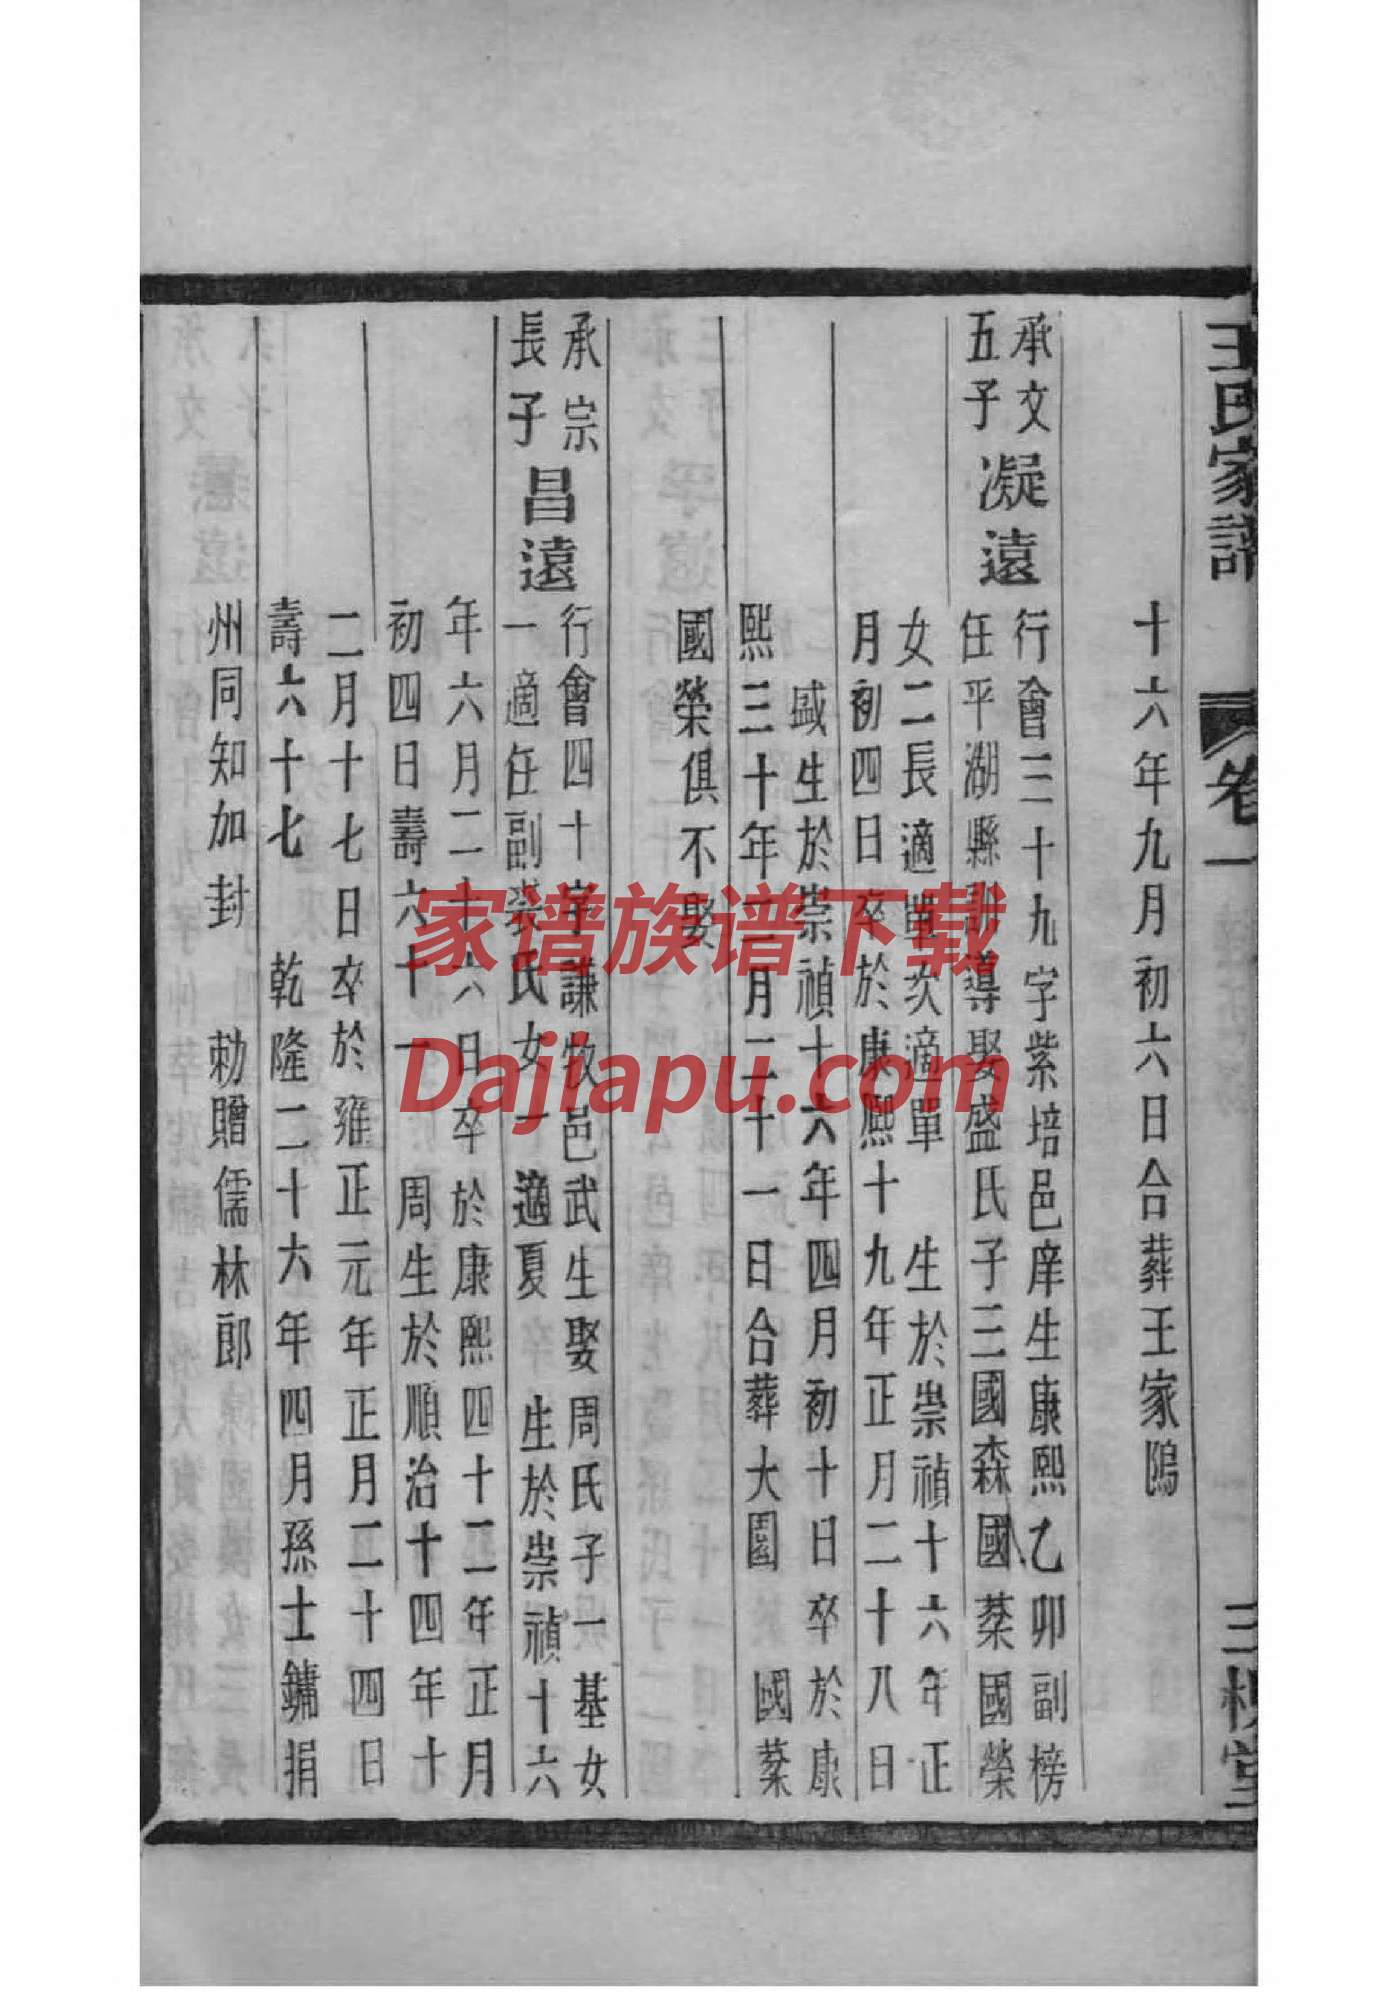 王氏家譜
卷一
三槐堂
十六年九月初六日合葬王家隖
承文
五子
凝遠
行會三十九字紫培邑庠生康熙乙卯副榜
任平湖縣訓導娶盛氏子三國森國棻國榮
女二長適單次適單 生於崇禎十六年正
月初四日卒於康熙十九年正月二十八日
盛生於崇禎十六年四月初十日卒於康
熙三十年三月二十一日合葬大園 國棻
國榮俱不娶
承宗
長子
昌遠
行會四十字謙牧邑武生娶周氏子一基女
一適任副裳氏女一適夏 生於崇禎十六
年六月二十六日卒於康熙四十二年正月
初四日壽六十一 周生於順治十四年十
二月十七日卒於雍正元年正月二十四日
壽六十七 乾隆二十六年四月孫士鏞捐
州同知加封 勅贈儒林郎
家谱族谱下载
Dajiapu.com